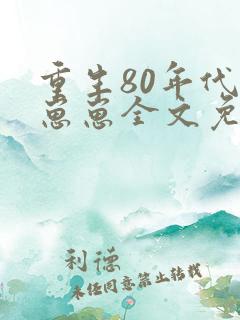 重生80年代
思思全文免
利德
未经同意禁止转载